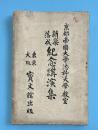 京都帝國大學法科大學教室
新築落成
紀念講演集
東京
大阪
寶文館出版